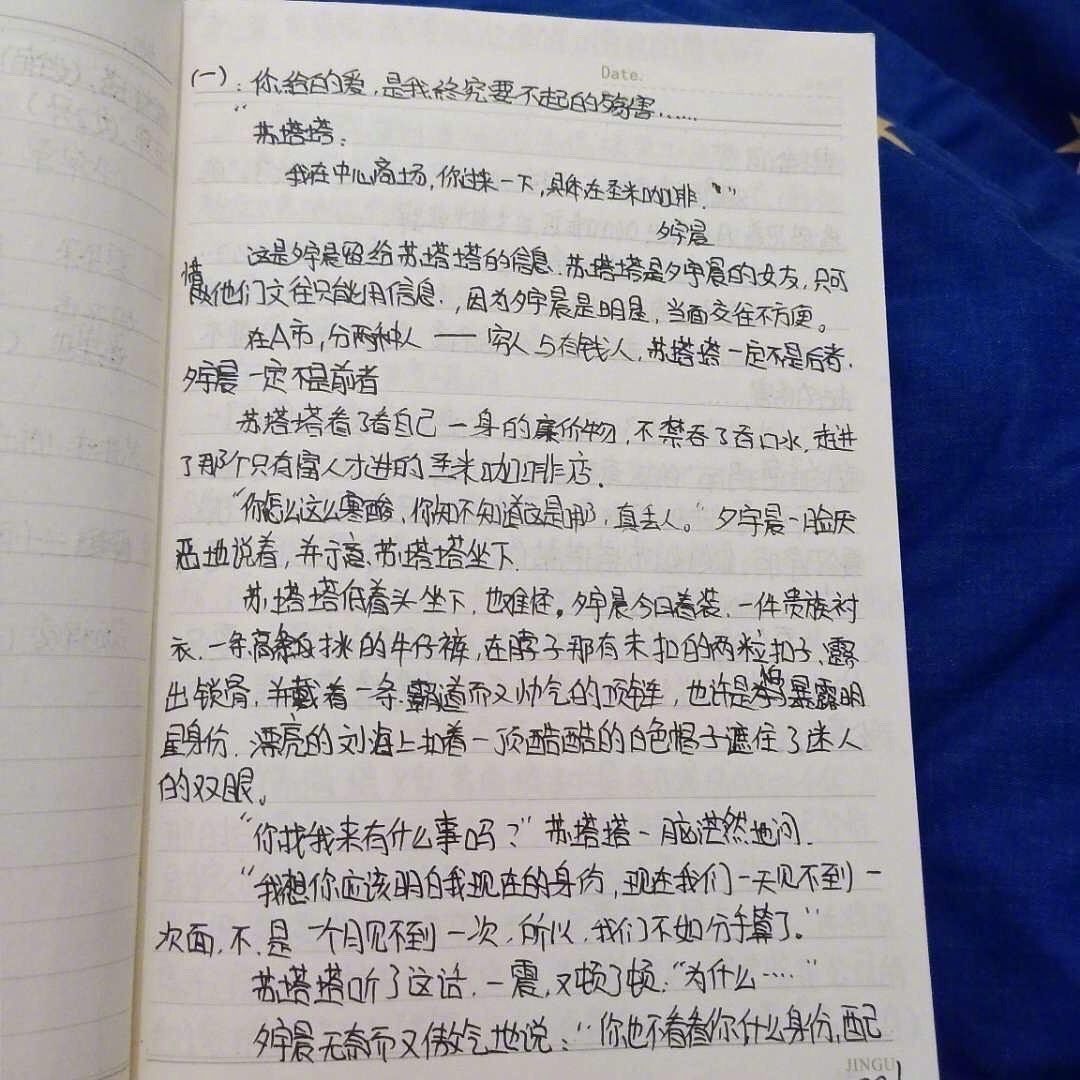 Date.
(一)：你给的爱，是我终究要不起的伤害……
“苏塔塔：
我在中心商场，你过来一下，具体在圣米咖啡.”
夕宇晨
这是夕宇晨留给苏塔塔的信息.苏塔塔是夕宇晨的女友，只可
惜他们交往只能用信息.，因为夕宇晨是明星，当面交往不方便。
在A市，分两种人——穷人与有钱人，苏塔塔一定不是后者.
夕宇晨一定不是前者
苏塔塔看了看自己一身的廉价物，不禁吞了吞口水，走进
了那个只有富人才进的圣米咖啡店.
“你怎么这么寒酸、你知不知道这是哪，真丢人。”夕宇晨一脸厌
恶地说着，并示意.苏塔塔坐下.
苏塔塔低着头坐下，也难怪。夕宇晨今日着装.一件贵族衬
衣.一条高挑的牛仔裤，在脖子那有未扣的两粒扣子、露
出锁骨，并戴着一条.霸道而又帅气的项链，也许是怕暴露明
星身份.漂亮的刘海上扣着一顶酷酷的白色帽子遮住了迷人
的双眼。
“你找我来有什么事吗？”苏塔塔一脸茫然地问.
“我想你应该明白我现在的身份，现在我们一天见不到一
次面，不.是一个月见不到一次，所以，我们不如分手算了。”
苏塔塔听了这话.一震，又顿了顿，“为什么……”
夕宇晨无奈而又傲气地说：“你也不看看你什么身份，配
JINGU